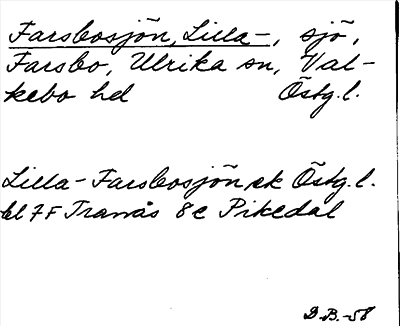 Farsbosjön, Lilla-, sjö,
Farsbo, Ulrika sn, Val-
kebo hd Östg.l.
Lilla-Farsbosjön ek Östg.l.
bl 7F Tranås 8c Pikedal
D.B.-58